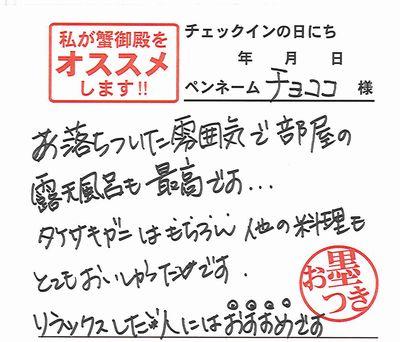 私が蟹御殿を
オススメ
します!!
チェックインの日にち
年 月 日
ペンネーム チョココ 様
お落ちついた雰囲気で部屋の
露天風呂も最高です...
タケザキガニはもちろん他の料理も
とてもおいしかったです.
リラックスしたい人にはおすすめです
お墨つき